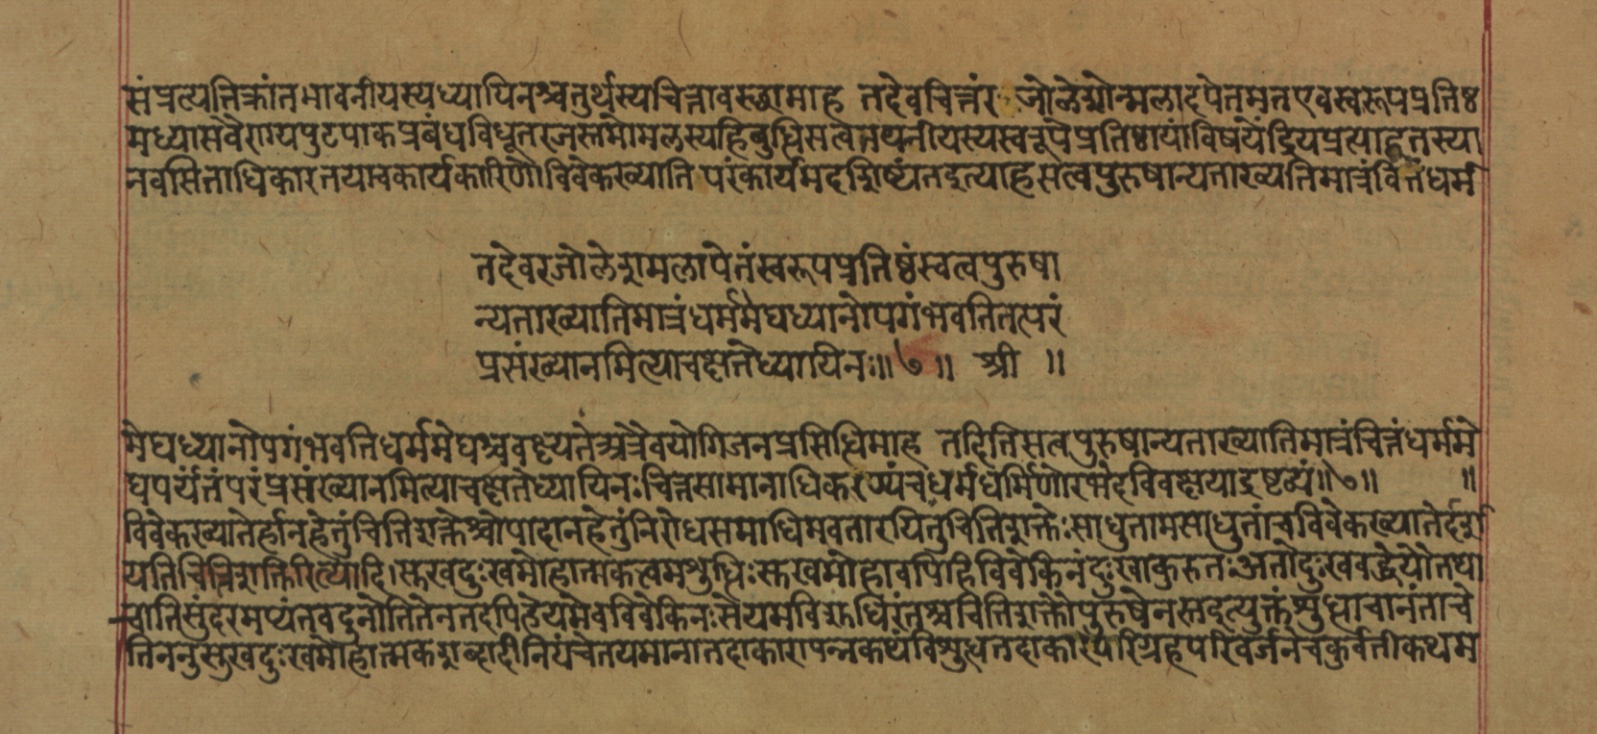 संप्रत्यतिक्रांतभावनीयस्यध्यायिनश्चतुर्थस्यचित्तावस्छामाह तदेवचित्तंरजोलेशोन्मलादपेतमतएवस्वरूपप्रतिष्ठ
मध्यासवैराग्यपुटपाकप्रबंधविधूतरजस्तमोमलस्यहिबुद्धिसत्वतपनीयस्यस्वरूपप्रतिष्ठायांविषयेंद्रियप्रत्याहृतस्या
नवसिताधिकारतयाचकार्यकारिणोविवेकख्याति परंकार्यमवशिष्यतइत्याहसत्वपुरुषान्यताख्यतिमात्रंचित्तंधर्म
तदेवरजोलेशमलापेतंस्वरूपप्रतिष्ठंस्वत्वपुरुषा
न्यताख्यातिमात्रंधर्ममेघध्यानोपगंभवतितत्परं
प्रसंख्यानमित्याचक्षतेध्यायिनः॥७॥ श्री ॥
मेघध्यानोपगंभवतिधर्ममेघश्चवक्ष्यतेअत्रैवयोगिजनप्रसिद्धिमाह तदितिसत्वपुरुषान्यताख्यातिमात्रंचित्तंधर्ममे
घपर्यंतंपरंप्रसंख्यानमित्याचक्षतेध्यायिनःचित्तसामानाधिकरण्यंचधर्मधर्मिणोरभेदविवक्षयाद्रष्टव्यं॥७॥ ॥
विवेकख्यातेर्हानहेतुंचितिशक्तेश्चोपादानहेतुंनिरोधसमाधिमवतारयितुंचितिशक्तेःसाधुतामसाधुतांचविवेकख्यातेर्दर्श
यतिचितिशक्तिरित्यादि।सुखदुःखमोहात्मकत्वमशुद्धिःसुखमोहावपिहिविवेकिनंदुःखाकुरुतःअतोदुःखवद्धेयौतथा
चातिसुंदरमप्यंतवदुनोतितेनतदपिहेयमेवविवेकिनःसेयमविशुद्धिरंतश्चचितिशक्तौपुरुषेनस्तइत्युक्तंशुद्धाचानंताचे
तिननुसुखदुःखमोहात्मकशब्दादीनियंचेतयमानातदाकारापन्नकथंविशुद्धातदाकारपरिग्रहपरिवर्जनेचकुर्वतीकथम